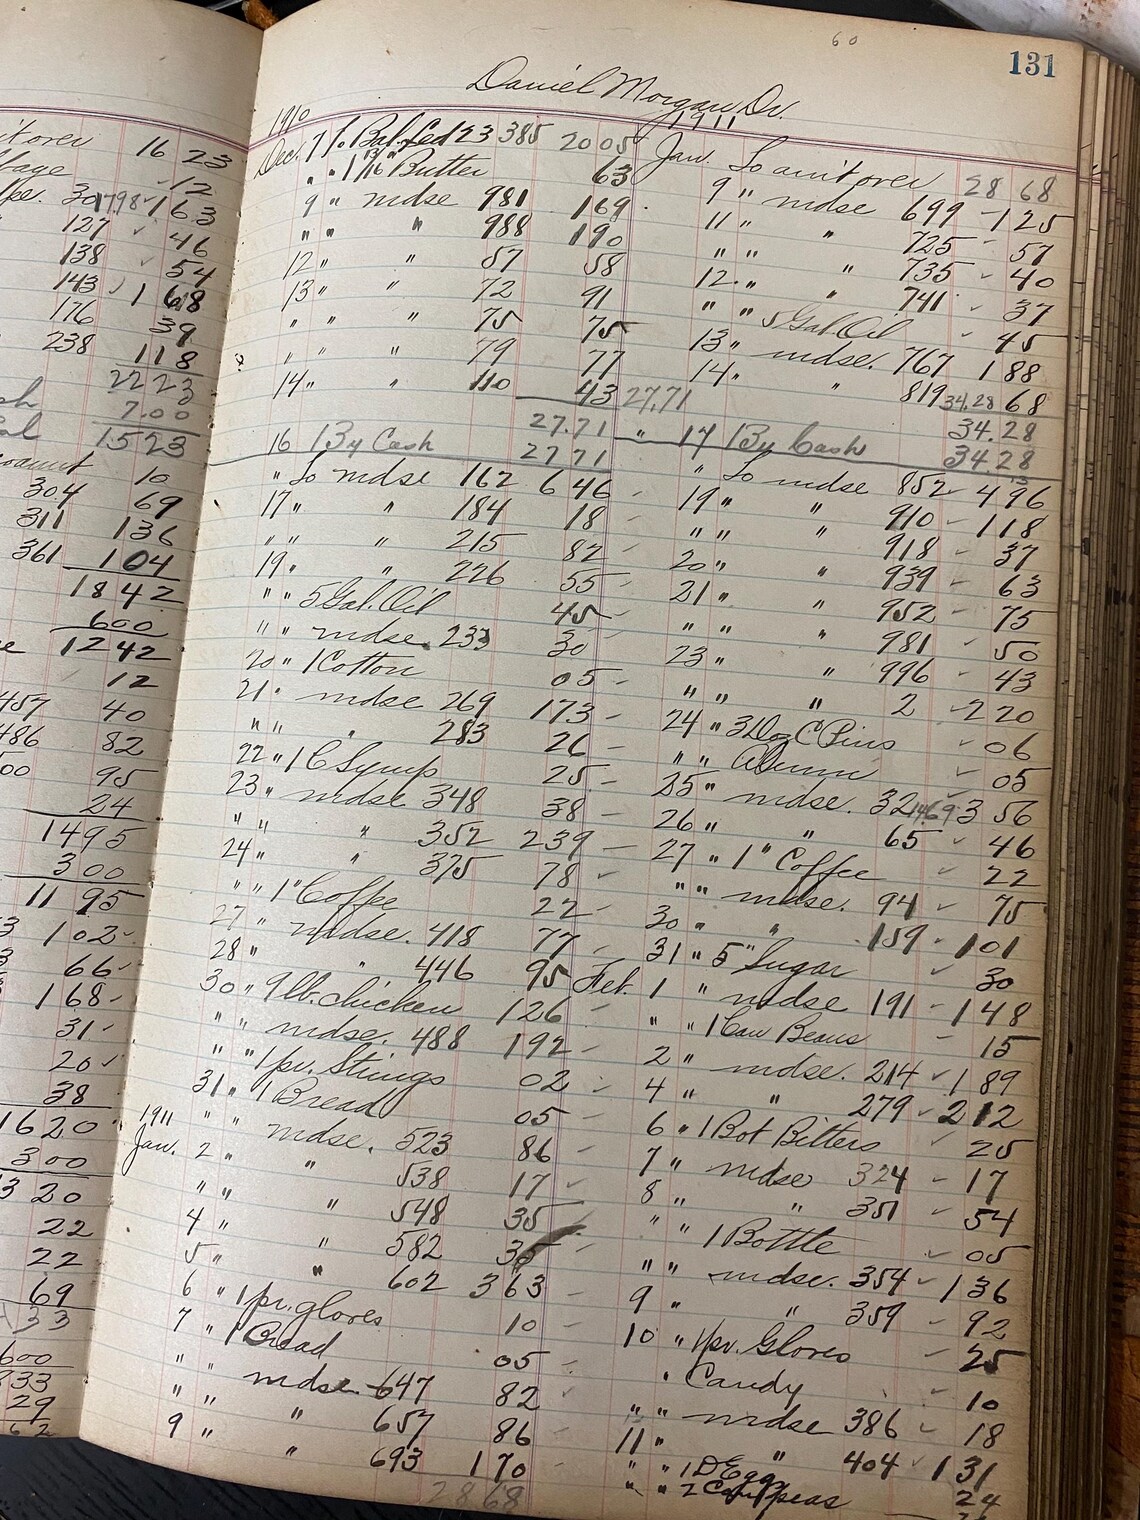 16 23
12
30 1798 163
127 46
138 54
143 1 68
176 39
238 118
22 23
7.00
15 23
10
304 69
311 136
361 104
18 42
6 00
12 42
12
457 40
486 82
00 95
24
14 95
3 00
11 95
102
66
168
31
20
38
16 20
3 00
13 20
22
22
69
33
600
833
29
62
60
131
Daniel Morgan, Dr.
1910
Dec. 7 To Bal. Led 23 385 20 05
" " 1 13/16 " Butter 63
9 " mdse 981 169
" " " 988 190
12 " " 57 58
13 " " 72 91
" " " 75 75
" " " 79 77
14 " " 110 43 27,71
27.71
16 By Cash 27 71
" To mdse 162 6 46
17 " " 184 18
" " " 215 82
19 " " 226 55
" " 5 Gal. Oil 45
" " mdse. 233 30
20 " 1 Cotton 05
21 " mdse 269 173
" " " 283 26
22 " 1 C Syrup 25
23 " mdse 348 38
" " " 352 239
24 " " 375 78
" " 1 " Coffee 22
27 " mdse. 418 77
28 " " 446 95
30 " 9 lb. chicken 126
" " mdse. 488 192
" " 1 pr. Strings 02
31 " 1 Bread 05
1911
" " mdse. 523 86
Jan. 2 " " 538 17
" " " 548 35
4 " " 582 35
5 " " 602 3 63
6 " 1 pr. gloves 10
7 " 1 Bread 05
" " mdse 647 82
" " " 657 86
9 " " 693 170
28 68
1911
Jan. To am't over 28 68
9 " mdse 699 125
11 " " 725 57
" " " 735 40
12 " " 741 37
" " 5 Gal Oil 45
13 " mdse. 767 188
14 " " 819 34.28 68
34.28
" 17 By Cash 34 28
" To mdse 852 4 96
19 " " 910 118
" " " 918 37
20 " " 939 63
21 " " 952 75
" " " 981 50
23 " " 996 43
" " " 2 2 20
24 " 3 Doz C Pins 06
" " 05
25 " mdse. 32 1469 3 56
26 " " 65 46
27 " 1 " Coffee 22
" " mdse. 94 75
30 " " 159 101
31 " 5 " Sugar 30
Feb. 1 " mdse 191 148
" " 1 Can Beans 15
2 " mdse. 214 189
4 " " 279 212
6 " 1 Bot Bitters 25
7 " mdse 324 17
8 " " 351 54
" " 1 Bottle 05
" " mdse. 354 136
9 " " 359 92
10 " 1 pr. Gloves 25
" Candy 10
" " mdse 386 18
11 " " 404 131
" " 1 D Eggs 24
" " 2 Can peas